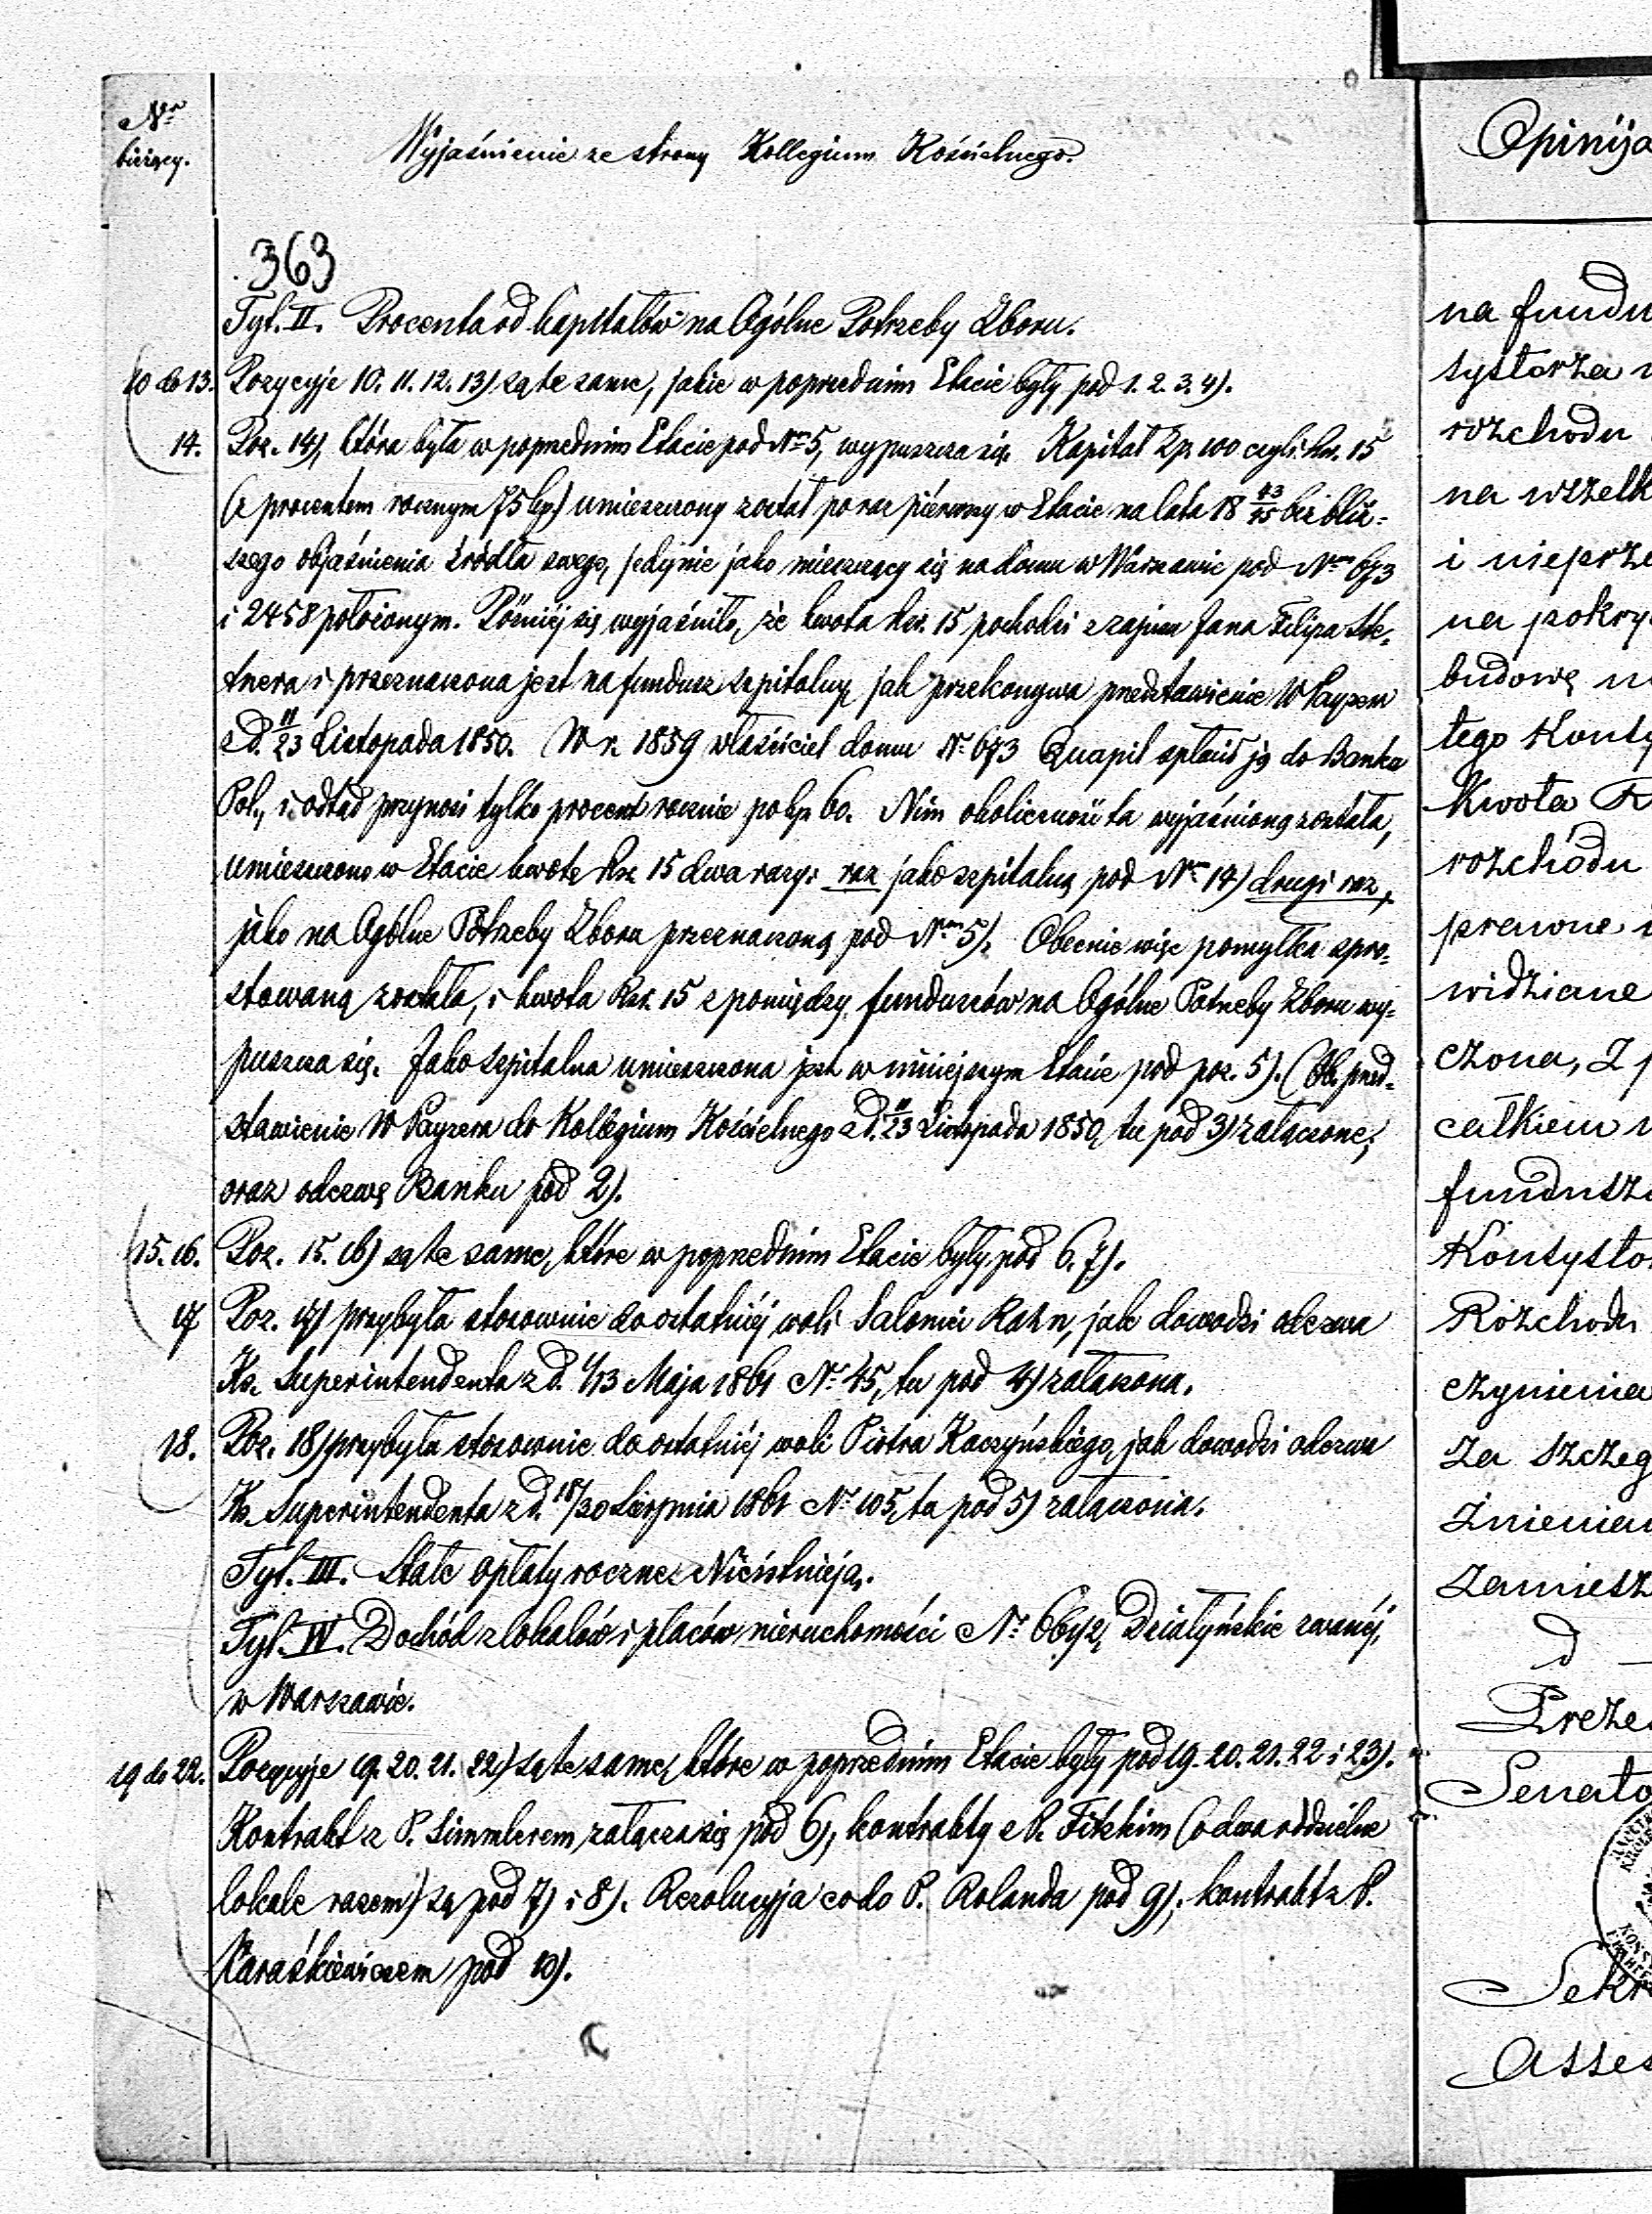 Nr
bieżący.
Wyjaśnienie ze strony Kollegium Kościelnego.
363
Tyt. II. Procenta od kapitałów na Ogólne Potrzeby Zboru.
10 do 13. Pozycyje 10. 11. 12. 13) są te same, jakie w poprzednim Etacie były pod 1. 2. 3. 4).
14. Poz. 14), która była w poprzednim Etacie pod Nrm 5, wypuszcza się. Kapitał Złp. 100 czyli Rsr. 15
(z procentem rocznym 75 kop.) umieszczony został po raz pierwszy w Etacie na lata 18 43/45 bez bliż-
szego objaśnienia źródła swego, jedynie jako mieszczący się na domu w Warszawie pod Nrm 673
i 2458 położonym. Później się wyjaśniło, że kwota Rsr. 15 pochodzi z zapisu Jana Filipa
tnera i przeznaczona jest na fundusz szpitalny, jak przekonywa przedstawienie W Payzera
z d. 11/23 Listopada 1850. W r. 1859 właściciel domu Nr 673 Quapil spłacił ją do Banku
Pol., i odtąd przynosi tylko procent rocznie po kop. 60. Nim okoliczność ta wyjaśnioną została,
umieszczono w Etacie kwotę Rsr. 15 dwa razy: raz jako szpitalną pod Nrm 14) drugi raz,
jako na Ogólne Potrzeby Zboru przeznaczoną pod Nrm 5). Obecnie więc pomyłka spro-
stowaną została, i kwota Rsr. 15 z pomiędzy funduszów na Ogólne Potrzeby Zboru wy-
puszcza się. Jako szpitalna umieszczona jest w niniejszym Etacie pod poz. 5). (Ob. przed-
stawienie W Payzera do Kollegium Kościelnego z d. 11/23 Listopada 1850, tu pod 3) załączone,
oraz odezwę Banku pod 2).
15. 16. Poz. 15. 16) są te same, które w poprzednim Etacie były pod 6. 7).
17 Poz. 17) przybyła stosownie do ostatniéj woli Salomei Rahn, jak dowodzi odezwa
Ks. Superintendenta z d. 1/13 Maja 1861 Nr 45, tu pod 4) załączona.
18. Poz. 18) przybyła stosownie do ostatniéj woli Piotra Kaczyńskiego, jak dowodzi odezwa
Ks. Superintendenta z d. 18/30 Sierpnia 1861 Nr 105, tu pod 5) załączona.
Tyt. III. Stałe opłaty roczne. Nie istnieją.
Tyt. IV. Dochód z lokalów i placów nieruchomości Nr Działyńskie zwanéj,
w Warszawie.
19 do 22. Pozycyje 19. 20. 21. 22) są te same, które w poprzednim Etacie były pod 19. 20. 21. 22 i 23).
Kontrakt z P. Simmlerem załącza się pod 6), kontrakty z P. Fitzkim (o dwa oddzielne
lokale razem) są pod 7) i 8). Rezolucyja co do P. Rolanda pod 9), kontrakt z P.
Karaśkiewiczem pod 10).
Opinija
na fundu
systorza
rozchodu
na wszelk
i nieprze
na pokry
budowę
tego Konsy
Kwota R
rozchodu
prawne
widziane
czona, z p
całkiem
fundusz
Konsysto
Rozchodu
czynienia
za szczeg
żnienia
zamiesz
d
Preze
Senato
Sekr
Asses